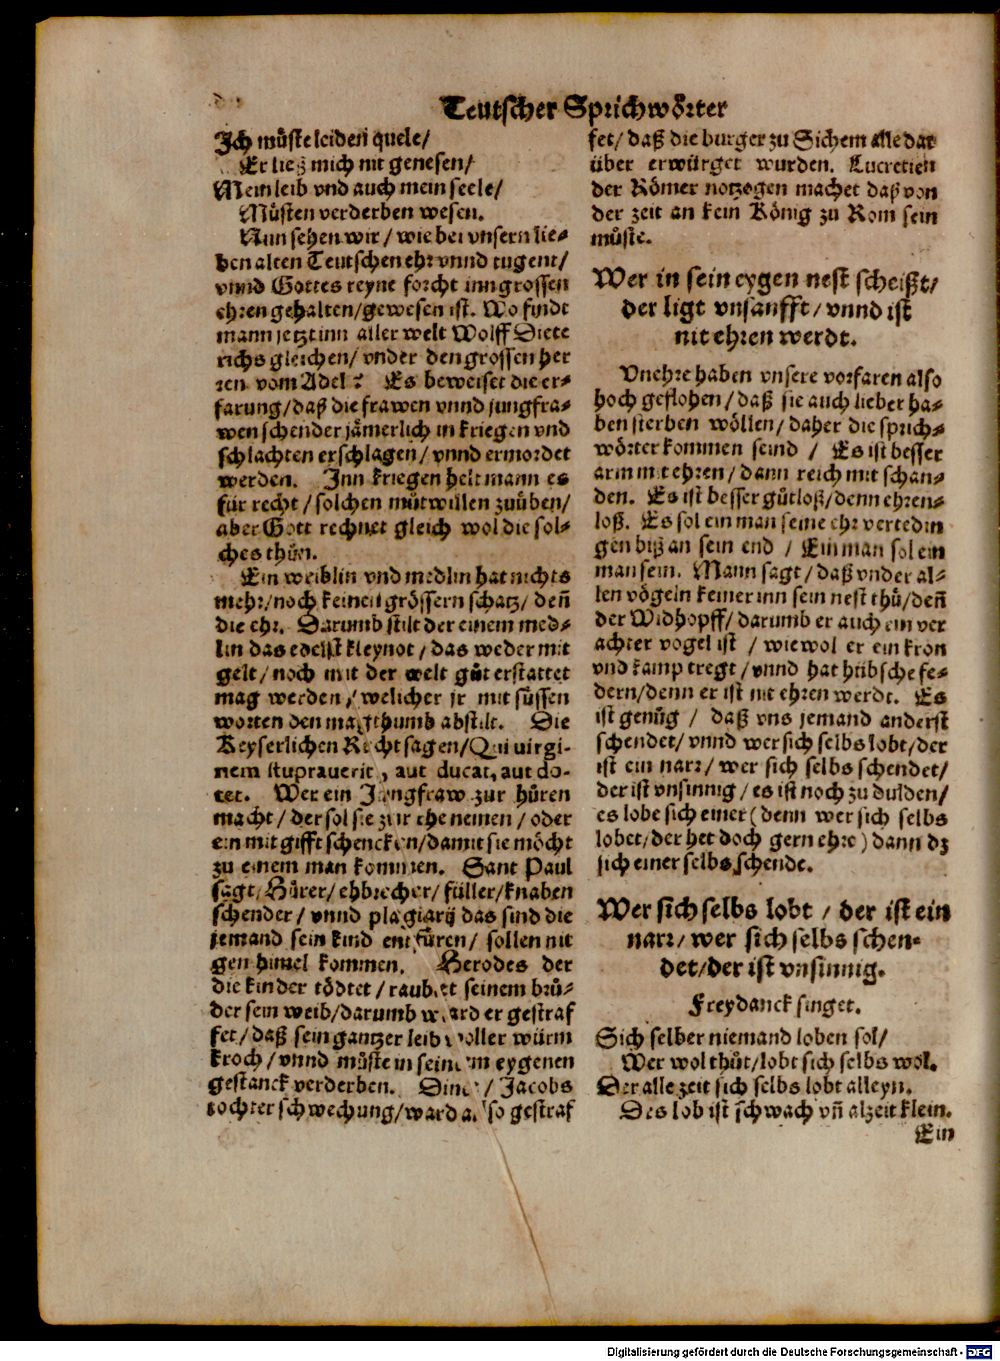 Teutscher Sprichwörter
Ich müste leiden quele/
Er ließ mich nit genesen/
Mein leib vnd auch mein seele/
Müsten verderben wesen.
Nun sehen wir / wie bei vnsern lie-
ben alten Teutschen ehr vnnd tugent/
vnnd Gottes reyne forcht inn grossen
ehren gehalten/gewesen ist. Wo findt
mann jetzt inn aller welt Wolff Diete
richs gleichen/ vnder den grossen her
ren vom Adel? Es beweiset die er-
farung/daß die frawen vnnd jungfra-
wen schender jämerlich in kriegen vnd
schlachten erschlagen/ vnnd ermordet
werden. Inn kriegen helt mann es
für recht/ solchen můtwillen zuüben/
aber Gott rechnet gleich wol die sol-
ches thůn.
Ein weiblin vnd medlin hat nichts
mehr/noch keinen grössern schatz/ deñ
die ehr. Darumb stilt der einem med-
lin das edelst kleynot / das weder mit
gelt/ noch mit der welt gůt erstattet
mag werden / welicher jr mit süssen
worten den magthumb abstilt. Die
Keyserlichen Recht sagen/Qui uirgi-
nem stuprauerit, aut ducat, aut do-
tet. Wer ein Jungfraw zur hůren
macht / der sol sie zur ehe nemen / oder
ein mitgifft schencken/damit sie möcht
zu einem man kommen. Sant Paul
sagt/ Hůrer/ ehbrecher/ füller/knaben
schender/ vnnd plagiarij das sind die
jemand sein kind entfüren/ sollen nit
gen himel kommen. Herodes der
die kinder tödtet / raubet seinem brů-
der sein weib/darumb ward er gestraf
fet/ daß sein gantzer leib voller würm
kroch/ vnnd můste in seinem eygenen
gestanck verderben. Dine / Jacobs
tochter schwechung/ward also gestraf
fet/ daß die burger zu Sichem alle dar
über erwürget wurden. Lucretien
der Römer notzogen machet daß von
der zeit an kein König zu Rom sein
můste.
Wer in sein eygen nest scheißt/
der ligt vnsanfft/ vnnd ist
nit ehren werdt.
Vnehre haben vnsere vorfaren also
hoch geflohen/ daß sie auch lieber ha-
ben sterben wöllen/ daher die sprich-
wörter kommen seind / Es ist besser
arm mit ehren/ dann reich mit schan-
den. Es ist besser gůtloß/denn ehren-
loß. Es sol ein man seine ehr vertedin
gen biß an sein end / Ein man sol ein
man sein. Mann sagt/ daß vnder al-
len vögeln keiner inn sein nest thů/deñ
der Widhopff/ darumb er auch ein ver
achter vogel ist / wiewol er ein kron
vnd kamp tregt/ vnnd hat hübsche fe-
dern/denn er ist nit ehren werdt. Es
ist genůg / daß vns jemand anderst
schendet/ vnnd wer sich selbs lobt/der
ist ein narr/ wer sich selbs schendet/
der ist vnsinnig / es ist noch zu dulden/
es lobe sich einer (denn wer sich selbs
lobet/der het doch gern ehre) dann dz
sich einer selbs schende.
Wer sich selbs lobt / der ist ein
narr/ wer sich selbs schen-
det/der ist vnsinnig.
Freydanck singet.
Sich selber niemand loben sol/
Wer wol thůt/lobt sich selbs wol.
Der alle zeit sich selbs lobt alleyn.
Des lob ist schwach vñ alzeit klein.
Ein
Digitalisierung gefördert durch die Deutsche Forschungsgemeinschaft - DFG